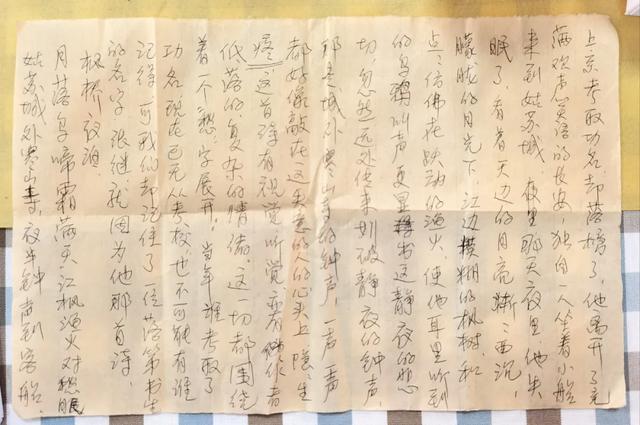 上京考取功名，却落榜了，他离开了充
满欢声笑语的长安，独自一人坐着小船
来到姑苏城，夜里那天夜里，他失
眠了，看着天边的月亮渐渐西沉，
朦胧的月光下，江边模糊的枫树，和
点点仿佛在跃动的渔火，使他耳里听到
的乌鸦叫声更显出这静夜的悲
切，忽然远处传来划破静夜的钟声，
那是城外寒山寺的钟声，一声一声
都好像敲在这失意的人的心头上隐隐生
疼，这首诗有视觉，听觉，亦有作者
低落的，复杂的情绪，这一切都围绕
着一个"愁"字展开，当年谁考取了
功名现在已无从考校也不可能有谁
记得，可我们却记住了一位落第书生
的名字张继，就因为他那首诗，
枫桥夜泊，
月落乌啼霜满天，江枫渔火对愁眠
姑苏城外寒山寺，夜半钟声到客船，